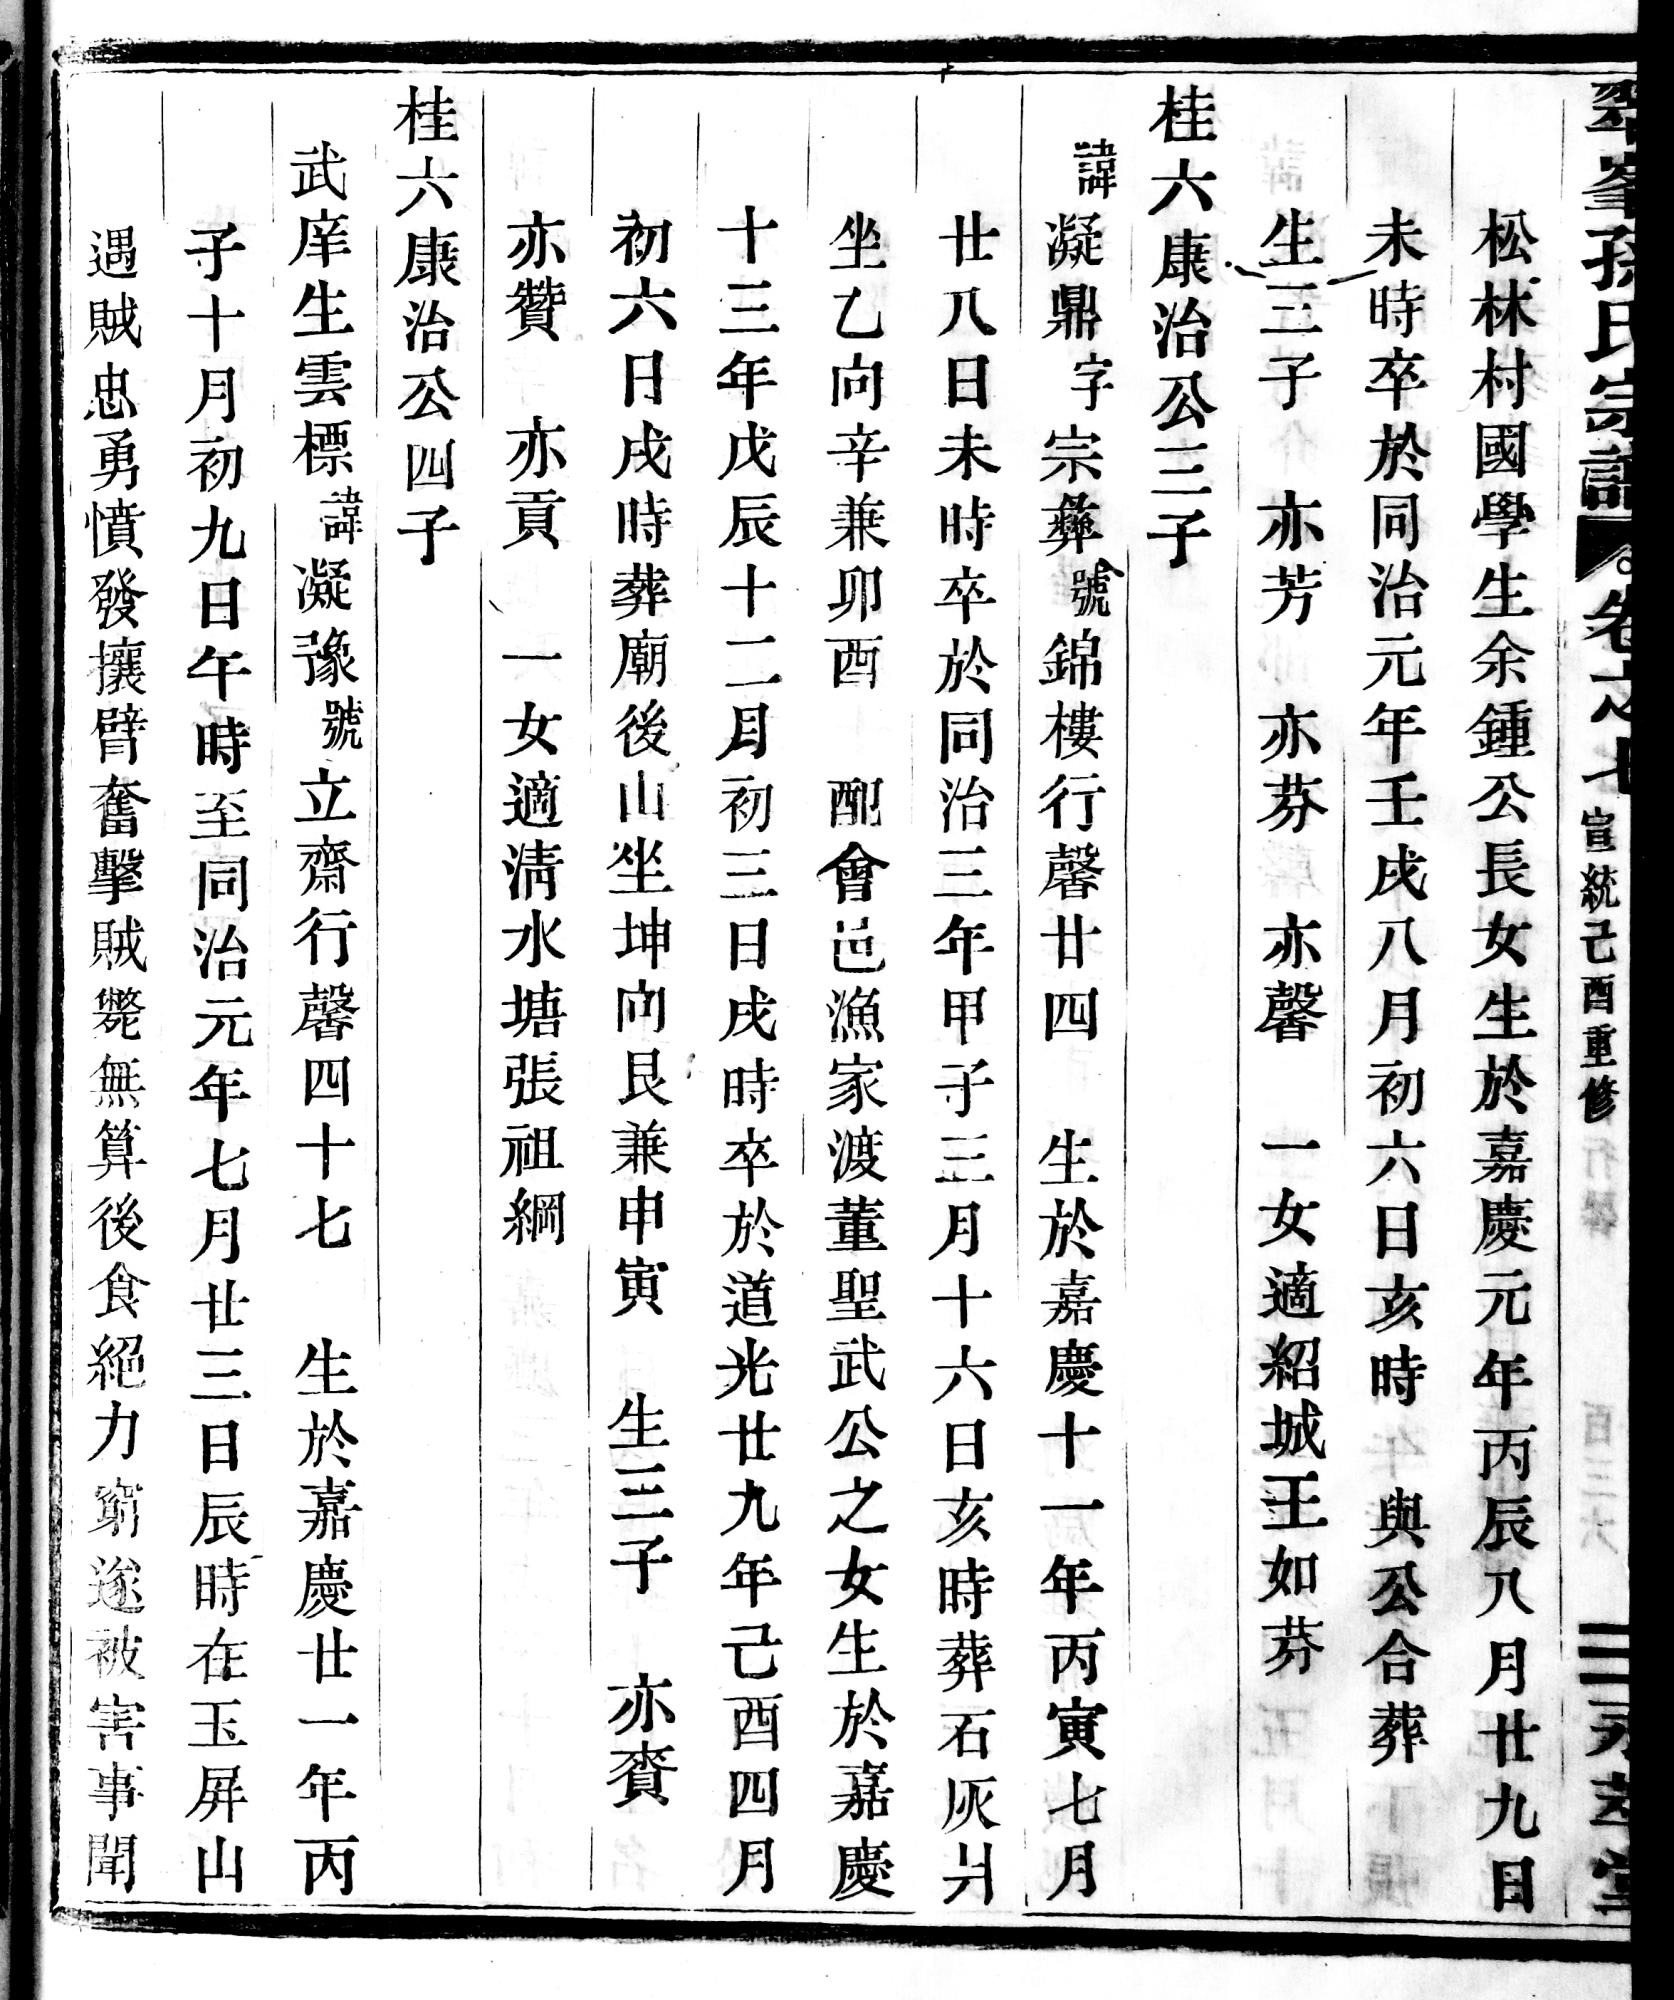 翠峯孫氏宗譜 卷之七 宣統己酉重修 永萃堂
松林村國學生余鍾公長女生於嘉慶元年丙辰八月廿九日
未時卒於同治元年壬戌八月初六日亥時 與公合葬
生三子 亦芳 亦芬 亦馨 一女適紹城王如芬
桂六康治公三子
諱凝鼎字宗彝號錦樓行馨廿四 生於嘉慶十一年丙寅七月
廿八日未時卒於同治三年甲子三月十六日亥時葬石灰爿
坐乙向辛兼卯酉 配會邑漁家渡董聖武公之女生於嘉慶
十三年戊辰十二月初三日戌時卒於道光廿九年己酉四月
初六日戌時葬廟後山坐坤向艮兼申寅 生三子 亦賚
亦贊 亦貢 一女適淸水塘張祖綱
桂六康治公四子
武庠生雲標諱凝豫號立齋行馨四十七 生於嘉慶廿一年丙
子十月初九日午時至同治元年七月廿三日辰時在玉屏山
遇賊忠勇憤發攘臂奮擊賊斃無算後食絕力窮遂被害事聞